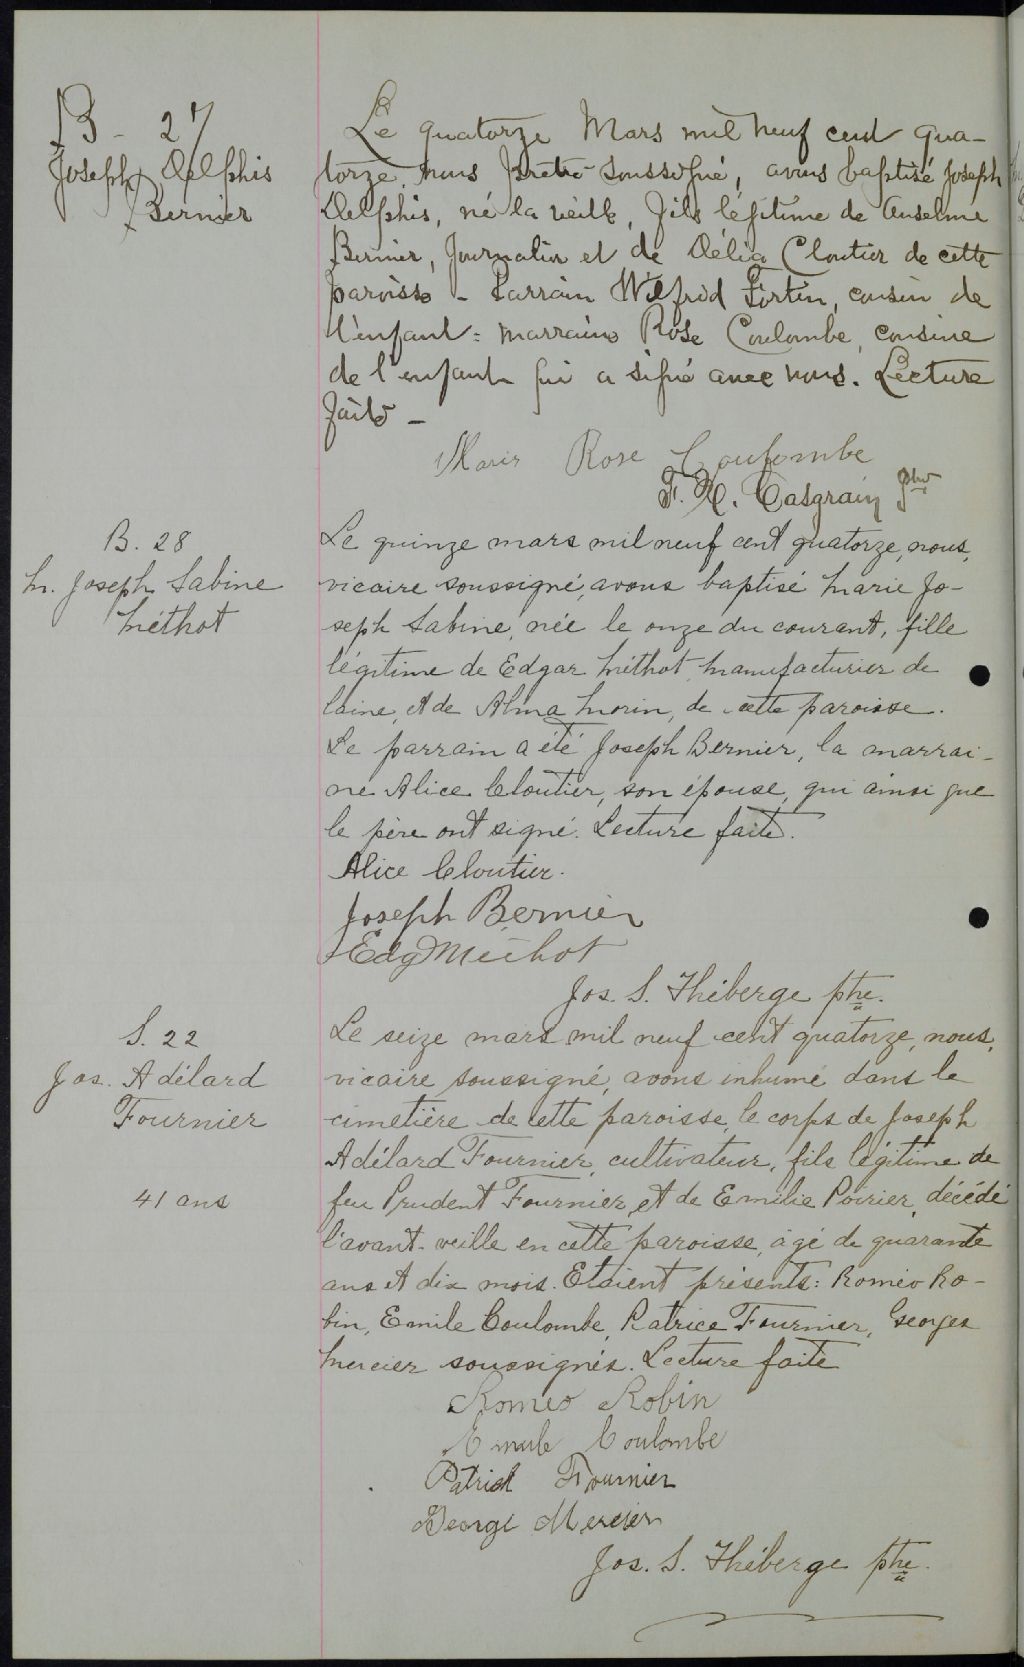 B - 27
Joseph Delphis
Bernier
Le quatorze Mars mil neuf cent qua-
torze, nous Prêtre soussigné, avons baptisé Joseph
Delphis, né la veille, fils légitime de Anselme
Bernier, Journalier et de Délia Cloutier de cette
paroisse - Parrain Wilfrid Fortin, cousin de
l'enfant : marraine Rose Coulombe, cousine
de l'enfant qui a signé avec nous. Lecture
faite -
Marie Rose Coulombe
F. X. Casgrain Ptre
B. 28
M. Joseph Sabine
Méthot
Le quinze mars mil neuf cent quatorze, nous,
vicaire soussigné, avons baptisé Marie Jo-
seph Sabine, née le onze du courant, fille
légitime de Edgar Méthot, manufacturier de
laine, et de Alma Morin, de cette paroisse.
Le parrain a été Joseph Bernier, la marrai-
ne Alice Cloutier, son épouse, qui ainsi que
le père ont signé. Lecture faite.
Alice Cloutier.
Joseph Bernier
Edg Méthot
Jos. S. Théberge ptre.
S. 22
Jos. Adélard
Fournier
41 ans
Le seize mars mil neuf cent quatorze, nous,
vicaire soussigné, avons inhumé dans le
cimetière de cette paroisse, le corps de Joseph
Adélard Fournier, cultivateur, fils légitime de
feu Prudent Fournier, et de Emilie Poirier, décédé
l'avant-veille en cette paroisse, âgé de quarante
ans et dix mois. Etaient présents : Roméo Ro-
bin, Emile Coulombe, Patrice Fournier, Georges
Mercier soussignés. Lecture faite
Romeo Robin
Emile Coulombe
Patrick Fournier
George Mercier
Jos. S. Théberge ptre.